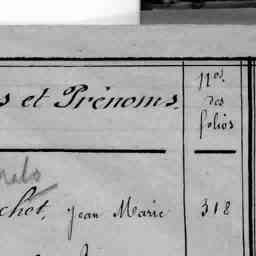 s et Prénoms.
nos
des
folios
chet, Jean Marie 318